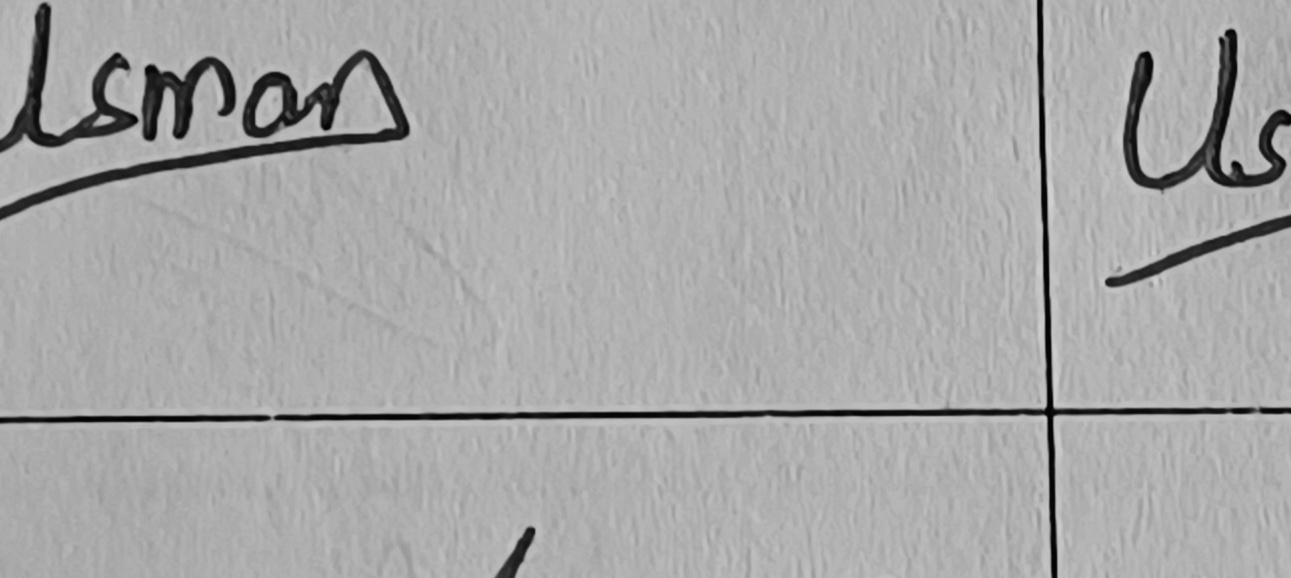 Usman
Us